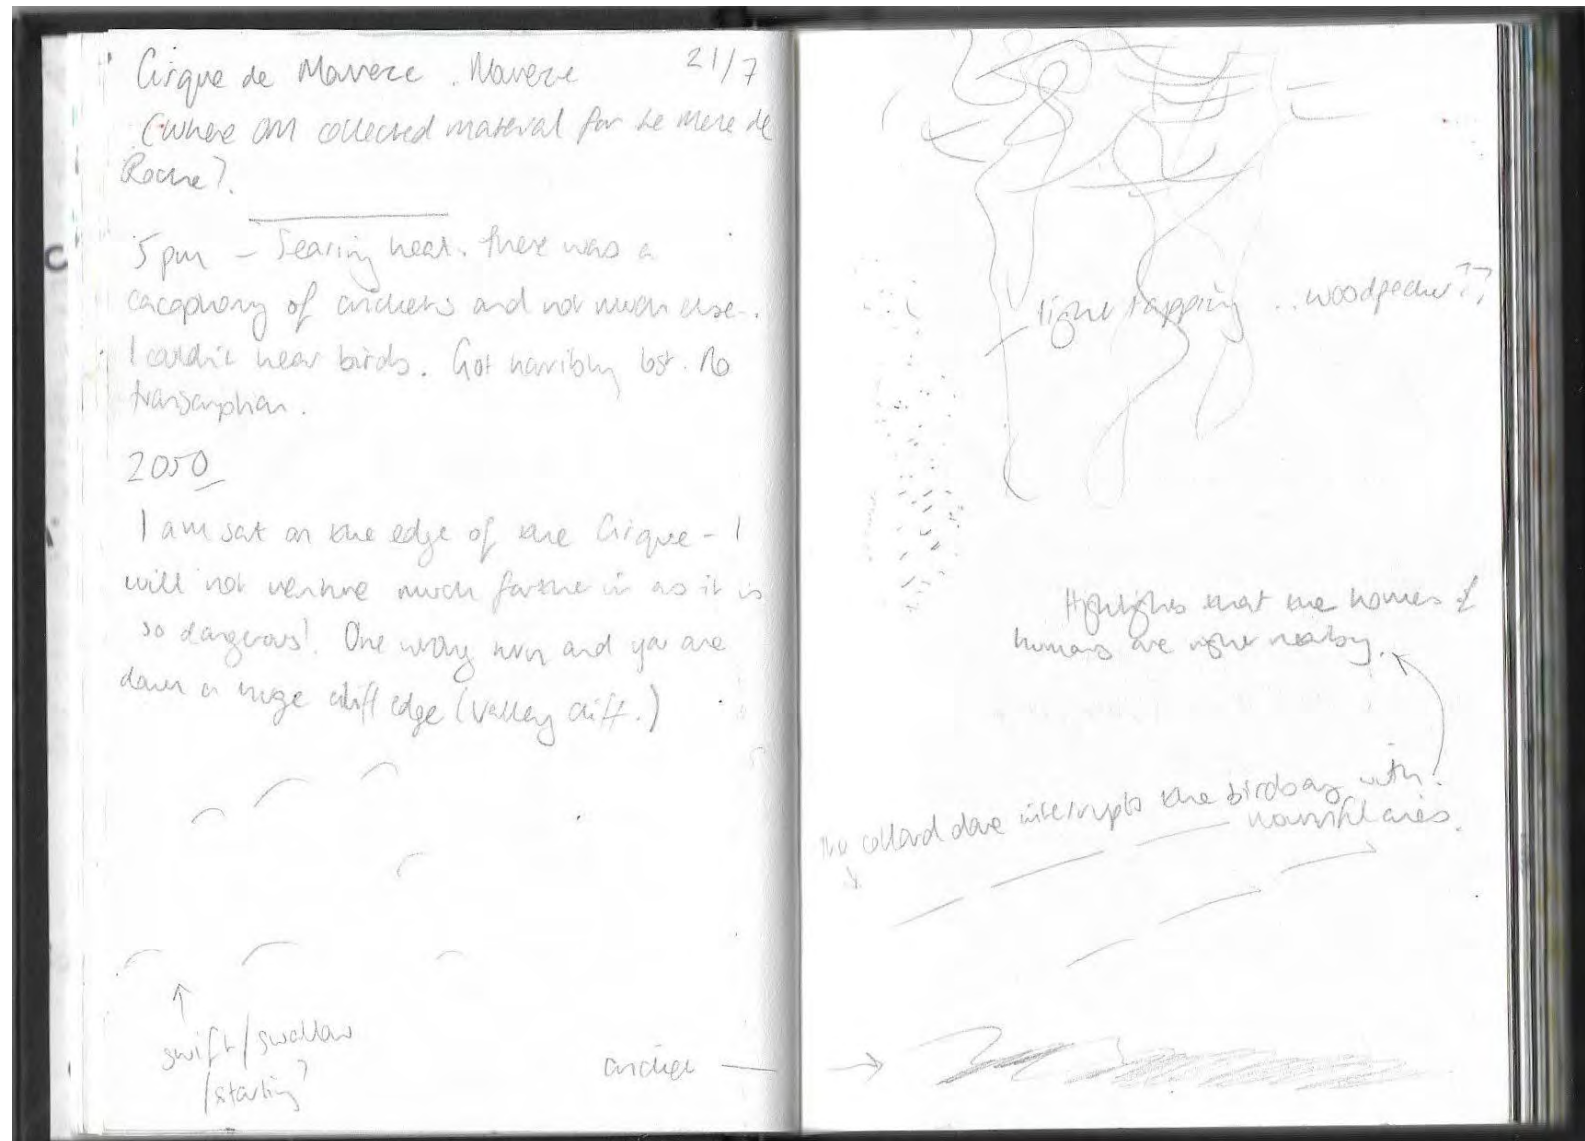 Cirque de Mourèze. Mourèze 21/7
(where OM collected material for Le Merle de
Roche?).
5pm - Searing heat. There was a
cacophony of crickets and not much else.
I couldn't hear birds. Got horribly lost. No
transcription.
2050
I am sat on the edge of the Cirque - I
will not venture much further in as it is
so dangerous! One wrong turn and you are
down a huge cliff edge (valley cliff.)
swift/swallow
/starling?
cricket
light tapping ... woodpecker??
Highlights that the homes of
humans are right nearby.
The collard dove interrupts the birdsong with
mournful cries.